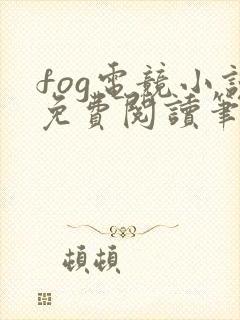 fog電競小說
免費閱讀筆
頓頓